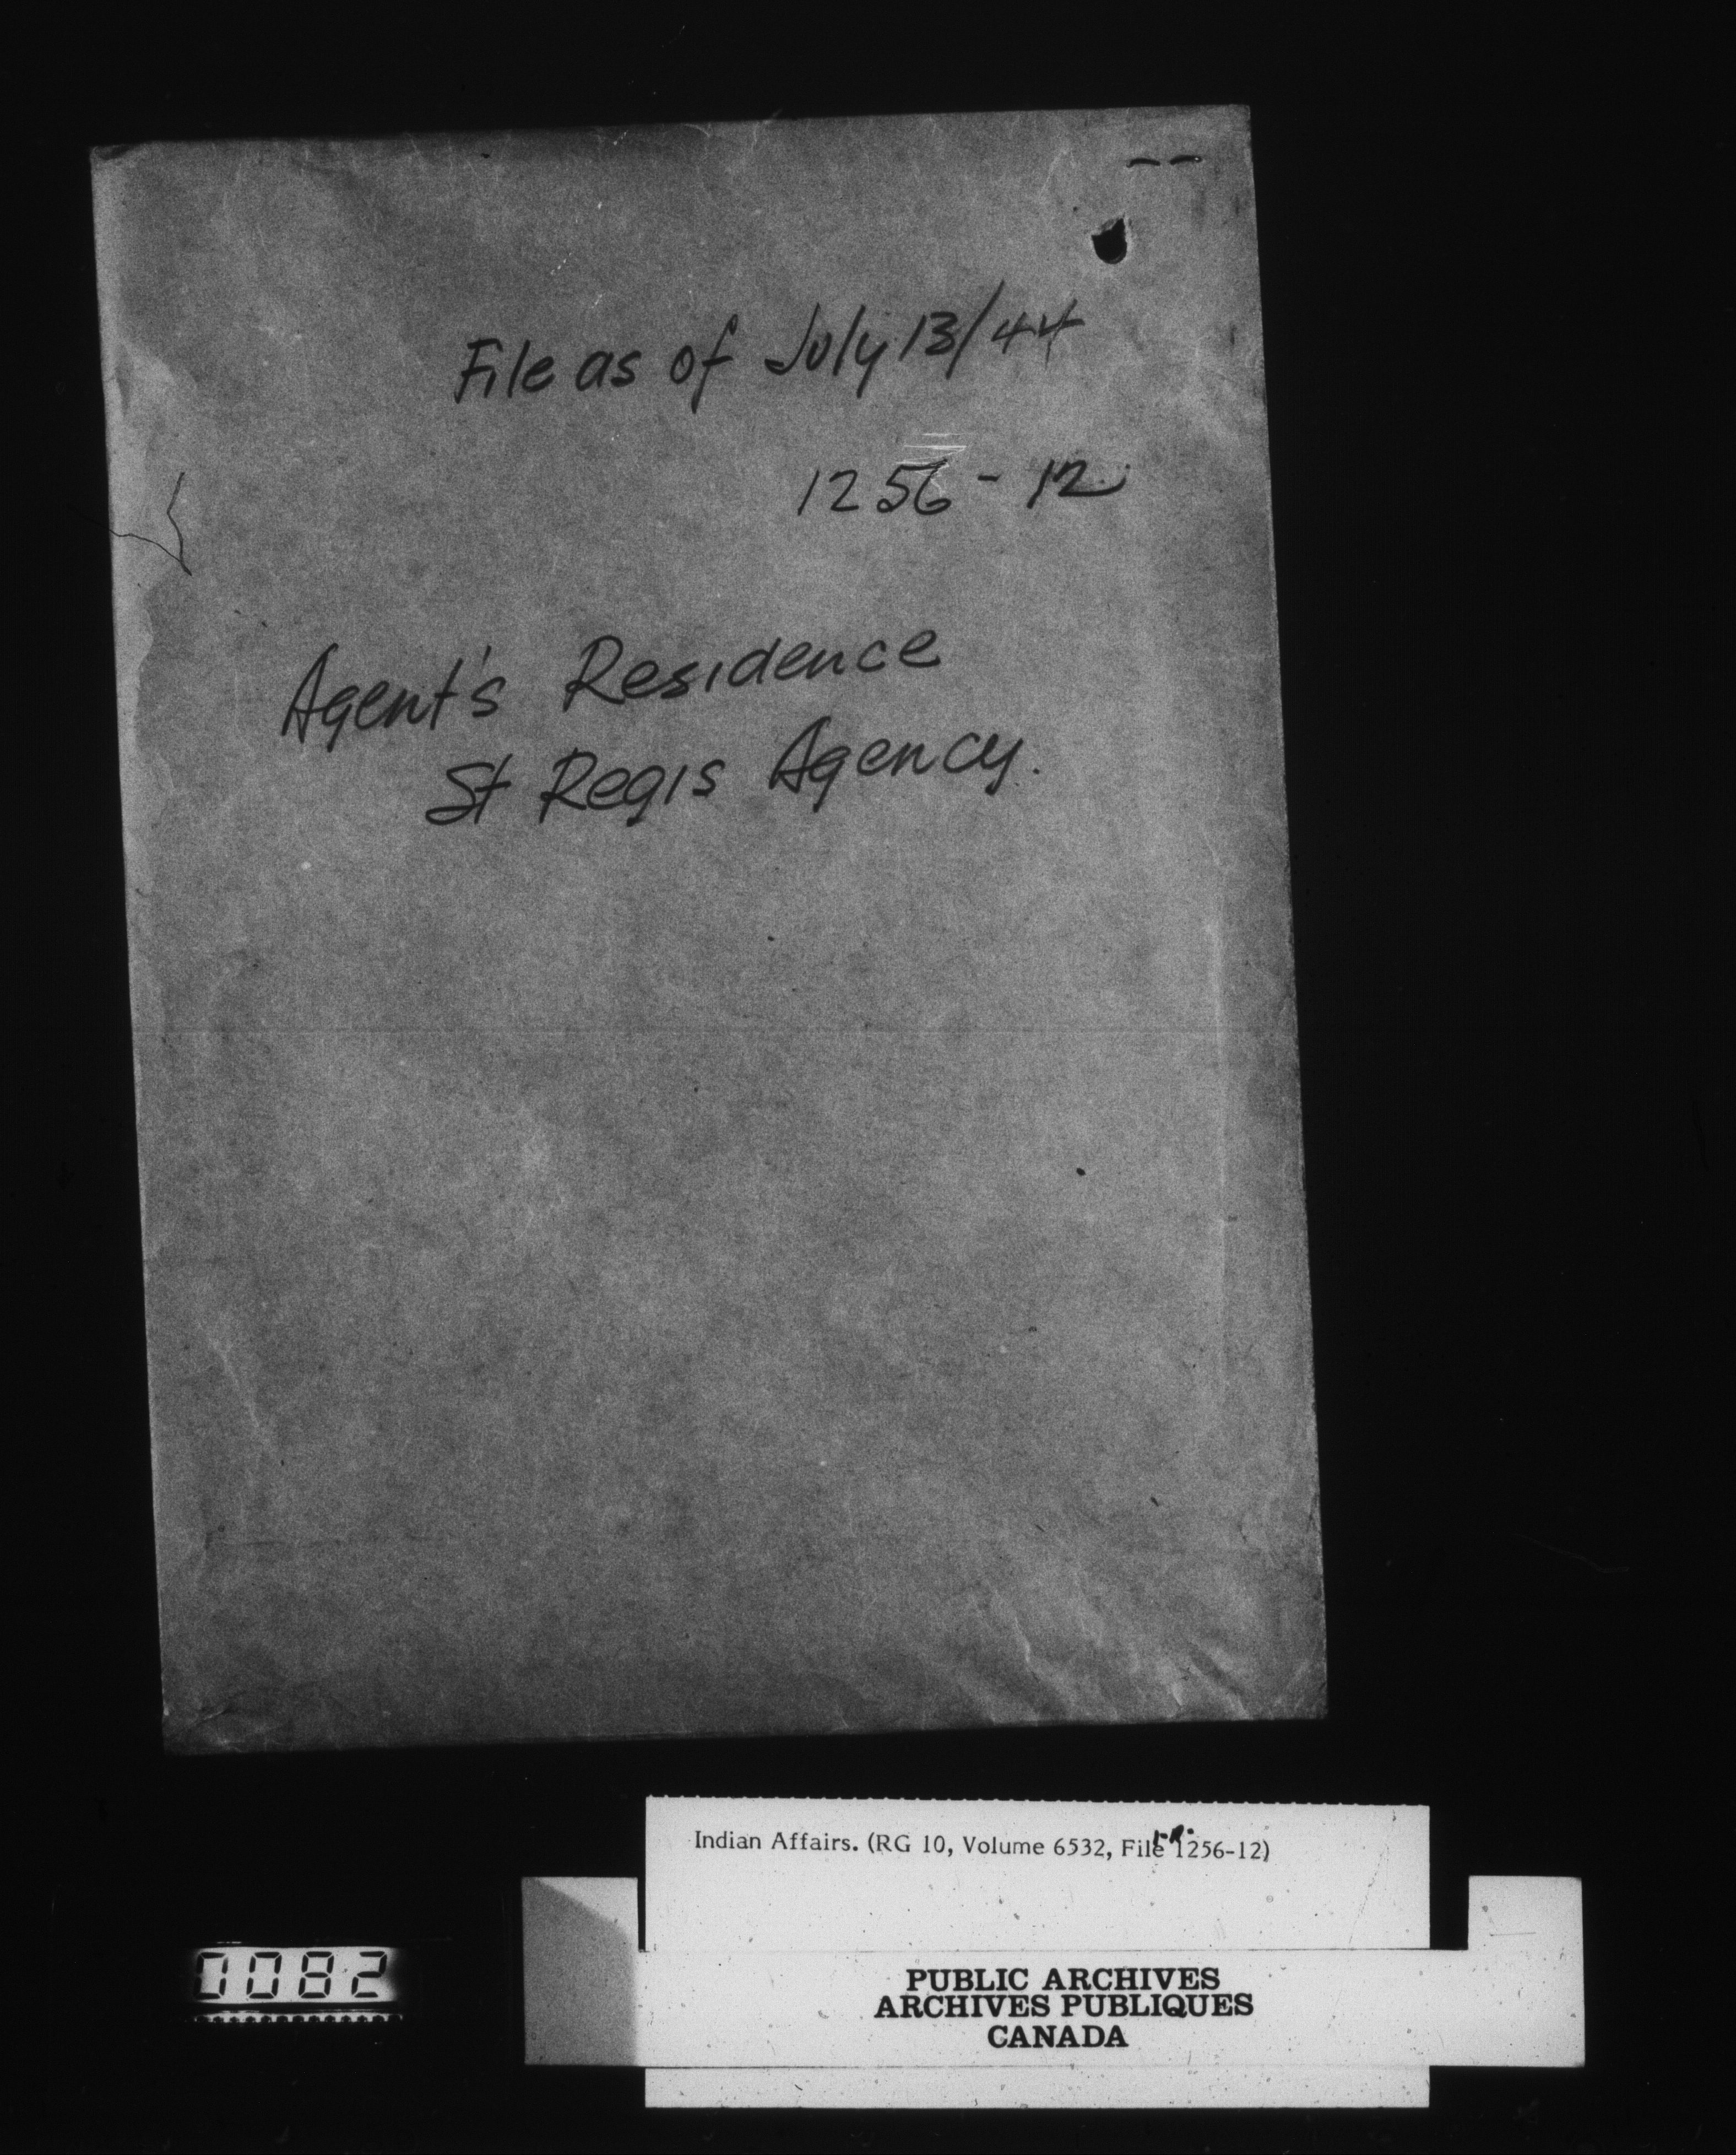 File as of July 13/44
1256-12
Agent's Residence
St Regis Agency.
Indian Affairs. (RG 10, Volume 6532, File 1256-12)
0082
PUBLIC ARCHIVES
ARCHIVES PUBLIQUES
CANADA